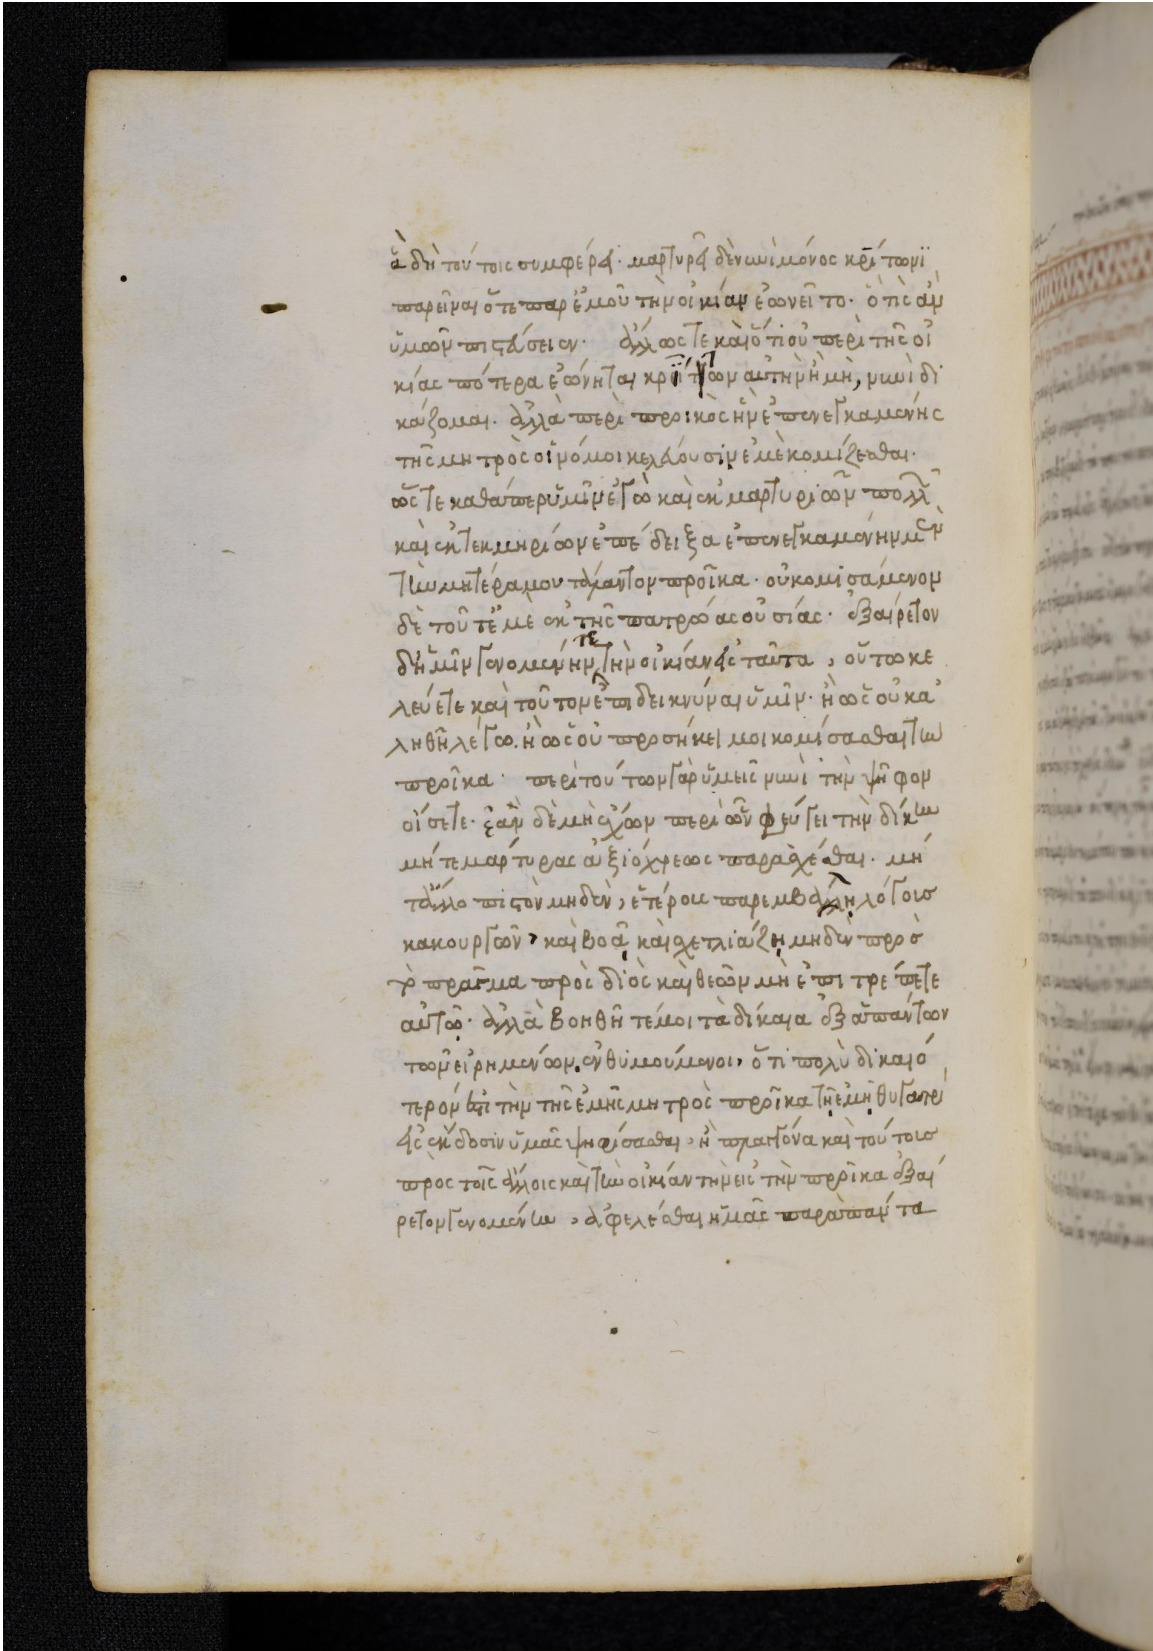 ἃ δὴ τούτοις συμφέρει· μαρτυρεῖ δὲ νυνὶ μόνος κρίτωνι
παρεῖναι ὅτε παρ' ἐμοῦ τὴν οἰκίαν ἐωνεῖτο· ὃ τίς ἂν
ὑμῶν πιστεύσειεν· ἄλλως τε καὶ ὅτι οὐ περὶ τῆς οἰ
κίας πότερα ἐώνηται κρίτων αὐτὴν ἢ μὴ, νυνὶ δι
κάζομαι. ἀλλὰ περὶ προικὸς ἣν ἐπενεγκαμένης
τῆς μητρὸς οἱ νόμοι κελεύουσιν ἐμὲ κομίζεσθαι.
ὥς τε καθάπερ ὑμῖν ἐγὼ καὶ ἐκ μαρτυριῶν πολλῶν
καὶ ἐκ τεκμηρίων ἐπέδειξα ἐπενεγκαμένην μὲν
τὴν μητέρα μου τάλαντον προῖκα· οὐ κομισάμενον
δὲ τοῦτ' ἐμὲ ἐκ τῆς πατρώας οὐσίας· ἐξαίρετον
δ' ἡμῖν γενομένην τε τὴν οἰκίαν εἰς ταῦτα, οὕτω κε
λεύετε καὶ τοῦτον ἐπιδεικνύναι ὑμῖν· ἢ ὡς οὐκ ἀ
ληθῆ λέγω. ἢ ὡς οὐ προσήκει μοι κομίσασθαι τὴν
προῖκα· περὶ τούτων γὰρ ὑμεῖς νυνὶ τὴν ψῆφον
οἴσετε· ἐὰν δὲ μὴ ἔχων περὶ ὧν φεύγει τὴν δίκην
μήτε μάρτυρας ἀξιόχρεως παρασχέσθαι. μή
τ' ἄλλο πιστὸν μηδὲν, ἑτέρους παρεμβάλλῃ λόγους
κακουργῶν, καὶ βοᾷ καὶ σχετλιάζῃ μηδὲν πρὸς
τὸ πρᾶγμα πρὸς διὸς καὶ θεῶν μὴ ἐπιτρέπετε
αὐτῷ· ἀλλὰ βοηθῆτέ μοι τὰ δίκαια ἐξ ἁπάντων
τῶν εἰρημένων. ἐνθυμούμενοι, ὅτι πολὺ δικαιό
τερον ἐστὶ τὴν τῆς ἐμῆς μητρὸς προῖκα τῇ ἐμῇ θυγατρὶ
εἰς ἔκδοσιν ὑμᾶς ψηφίσασθαι, ἢ πλαγγόνα καὶ τούτους
πρὸς τοῖς ἄλλοις καὶ τὴν οἰκίαν τὴν εἰς τὴν προῖκα ἐξαί
ρετον γενομένην, ἀφελέσθαι ἡμᾶς παρὰ πάντα